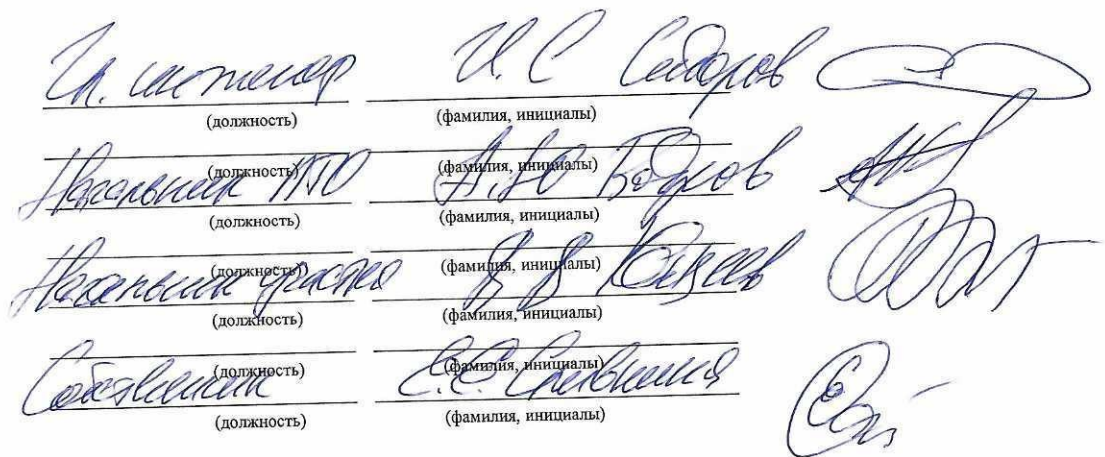 Гл. инженер И. С Сидоров
(должность) (фамилия, инициалы)
(должность) (фамилия, инициалы)
Начальник ПТО А.Ю Бодров
(должность) (фамилия, инициалы)
(должность) (фамилия, инициалы)
Начальник участка В В
(должность) (фамилия, инициалы)
(должность) (фамилия, инициалы)
Собственник С.С.
(должность) (фамилия, инициалы)